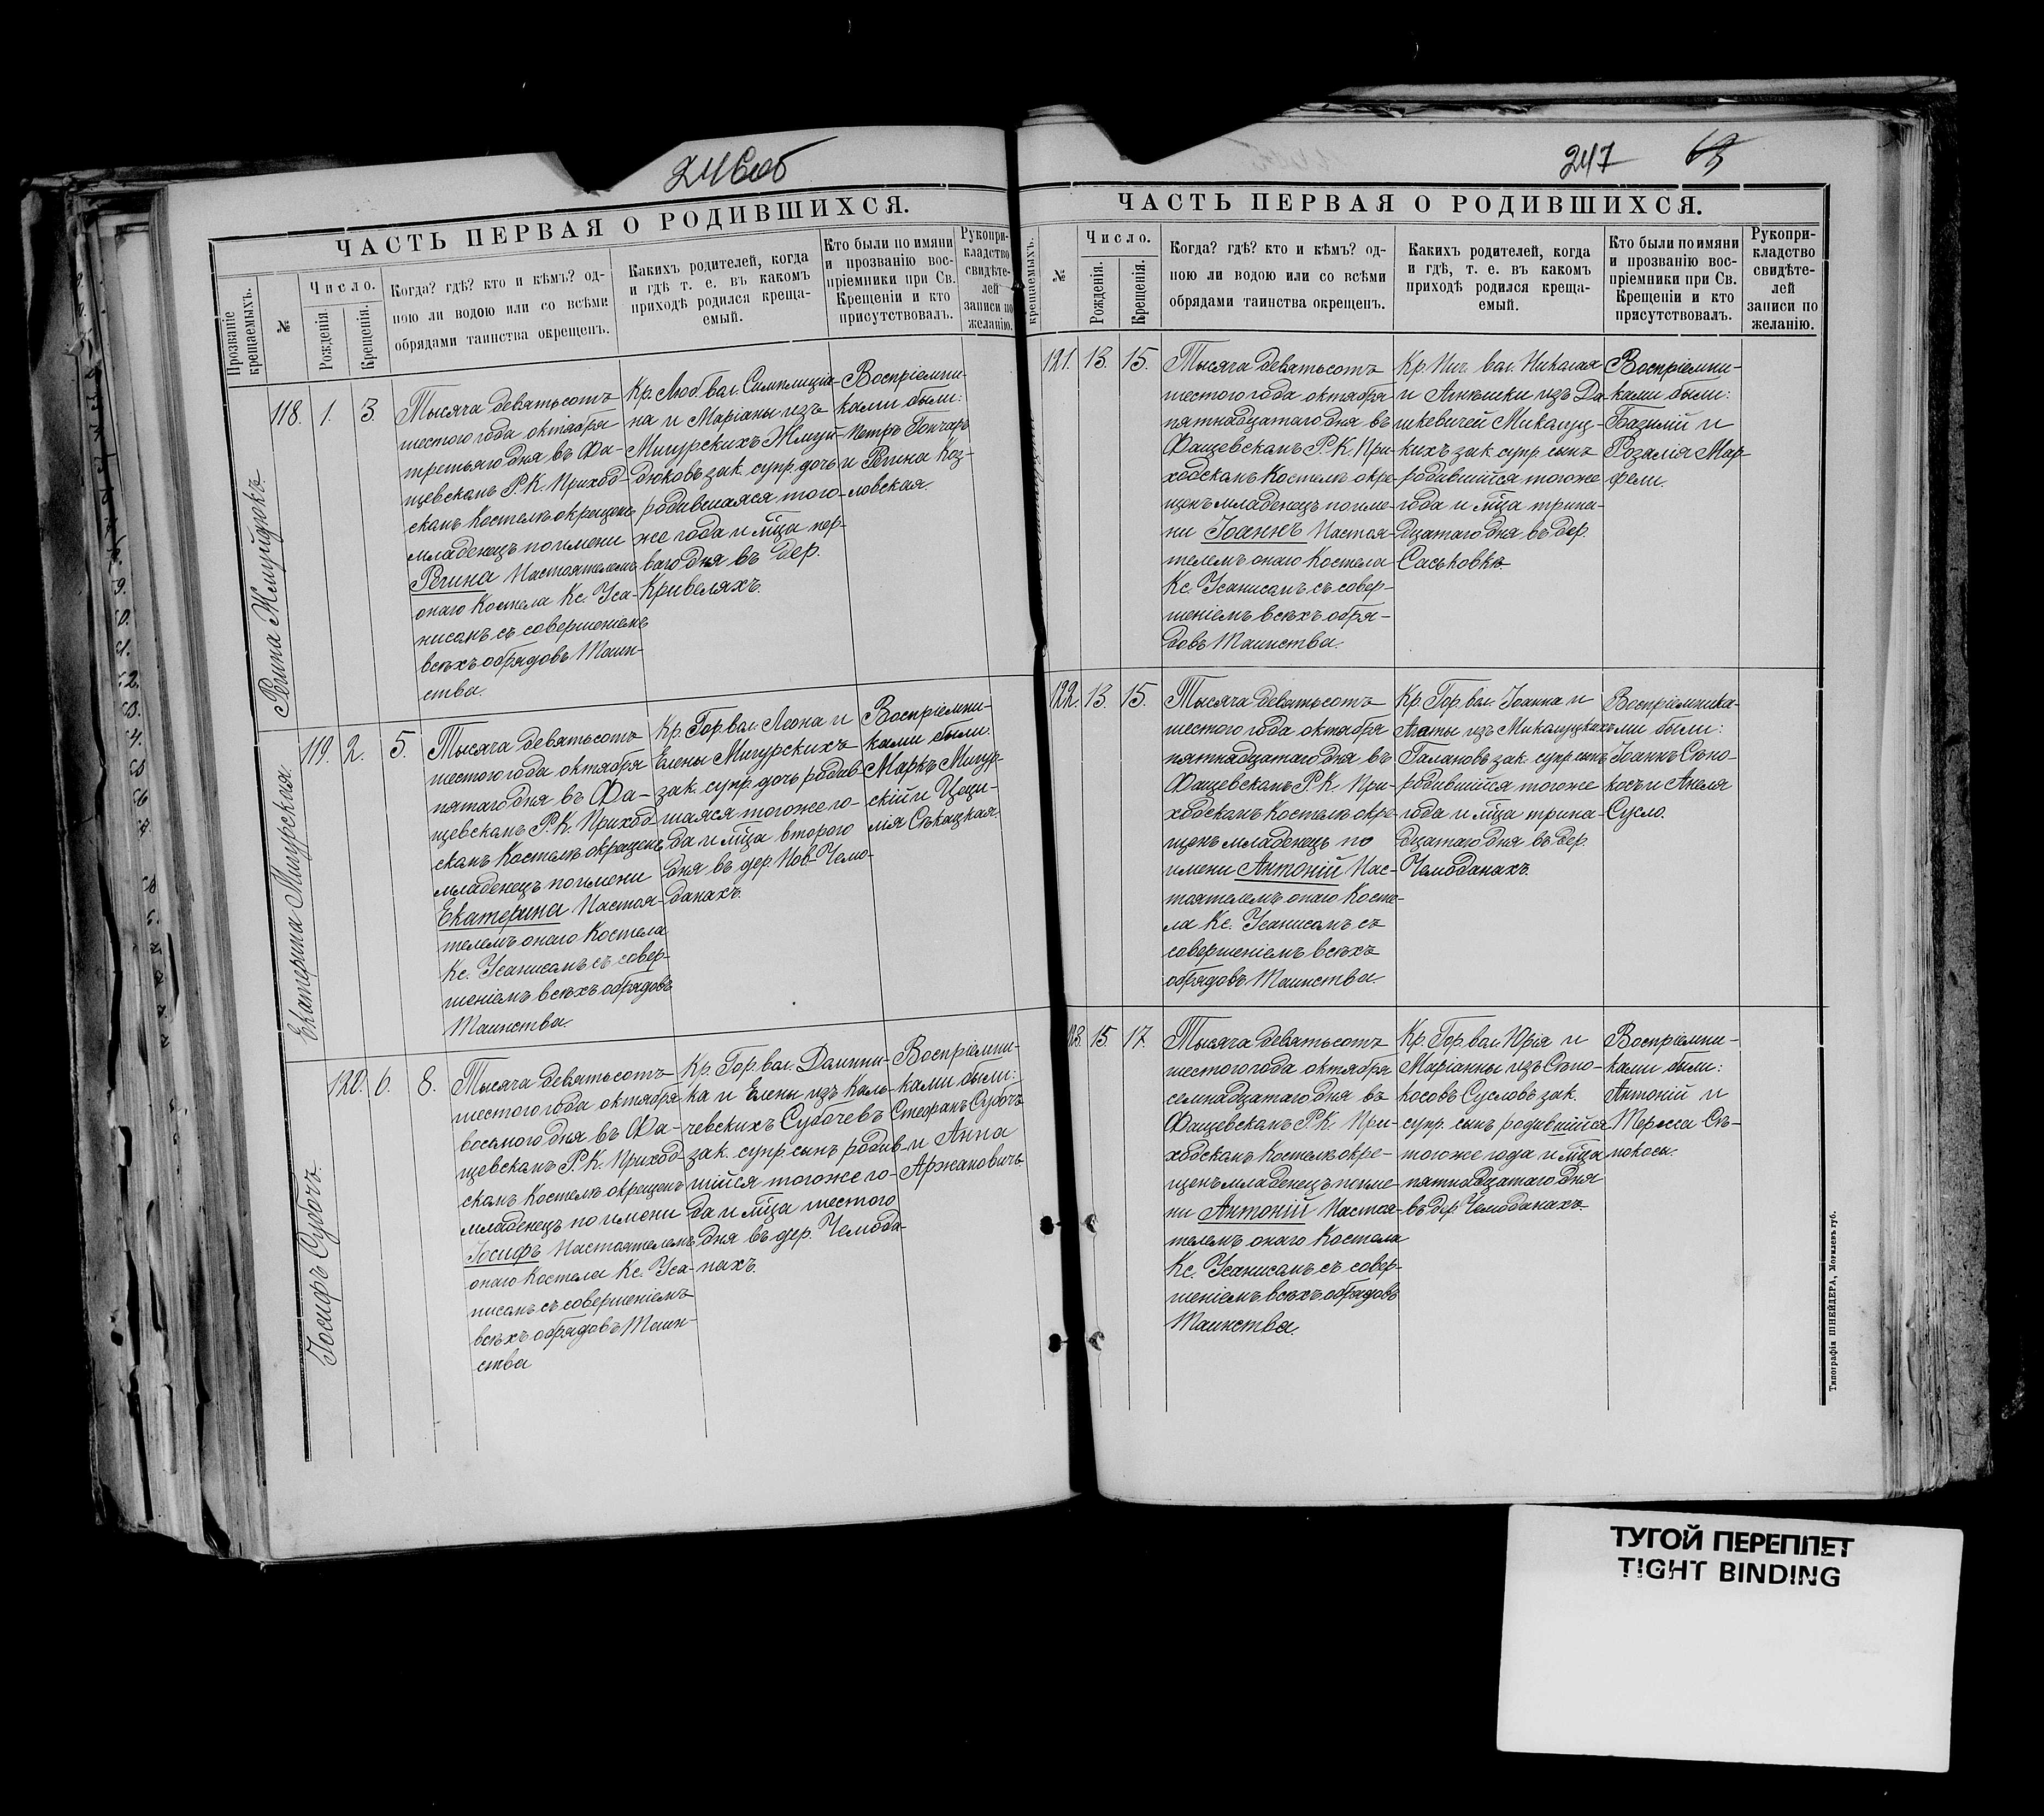 246об
ЧАСТЬ ПЕРВАЯ О РОДИВШИХСЯ.
Прозваніе крещаемыхъ.
№
Число.
Рожденія.
Крещенія.
Когда? гдѣ? кто и кѣмъ? од-
ною ли водою или со всѣми
обрядами таинства окрещенъ.
Какихъ родителей, когда
и гдѣ т. е. въ какомъ
приходѣ родился креща-
емый.
Кто были по имяни
и прозванію вос-
пріемники при Св.
Крещеніи и кто
присутствовалъ.
Рукопри-
кладство
свидѣте-
лей
записи по
желанію.
Регина Жмуйдюкъ.
118. 1. 3.
Тысяча девятьсотъ
шестого года октября
третьяго дня въ Фа-
щевскомъ Р. К. Приход-
скомъ Костелѣ окрещенъ
младенецъ по имени
Регина Настоятелемъ
онаго Костела Кс. Уса-
нисомъ съ совершеніемъ
всѣхъ обрядовъ Таин-
ства.
Кр. Люб. вол. Симплиція-
на и Маріаны изъ
Мигурскихъ Жмуй-
дюковъ зак. супр. дочь
родившаяся того-
же года и м͠ца пер-
ваго дня въ дер.
Кривеляхъ.
Воспріемни-
ками были:
Петръ Гончаръ
и Регина Коз-
ловская.
Екатерина Мигурская.
119. 2. 5.
Тысяча девятьсотъ
шестого года октября
пятаго дня въ Фа-
щевскомъ Р. К. Приход-
скомъ Костелѣ окрещенъ
младенецъ по имени
Екатерина Настоя-
телемъ онаго Костела
Кс. Усанисомъ съ совер-
шеніемъ всѣхъ обрядовъ
Таинства.
Кр. Гор. вол. Леона и
Елены Мигурскихъ
зак. супр. дочь родив-
шаяся тогоже го-
да и м͠ца второго
дня въ дер. Нов-Чемо-
данахъ.
Воспріемни-
ками были:
Маркъ Мигур-
скій и Цеци-
лія Сѣкацкая.
Іосифъ Субочъ.
120. 6. 8.
Тысяча девятьсотъ
шестого года октября
восьмого дня въ Фа-
щевскомъ Р. К. Приход-
скомъ Костелѣ окрещенъ
младенецъ по имени
Іосифъ Настоятелемъ
онаго Костела Кс. Уса-
нисомъ съ совершеніемъ
всѣхъ обрядовъ Таин-
ства
Кр. Гор. вол. Домини-
ка и Елены изъ Каль-
чевскихъ Субочевъ
зак. супр. сынъ родив-
шійся тогоже го-
да и м͠ца шестого
дня въ дер. Чемода-
нахъ.
Воспріемни-
ками были:
Стефанъ Субочъ
и Анна
Аржановичъ
247 63
ЧАСТЬ ПЕРВАЯ О РОДИВШИХСЯ.
крещаемыхъ.
№
Число.
Рожденія.
Крещенія.
Когда? гдѣ? кто и кѣмъ? од-
ною ли водою или со всѣми
обрядами таинства окрещенъ.
Какихъ родителей, когда
и гдѣ, т. е. въ какомъ
приходѣ родился креща-
емый.
Кто были по имяни
и прозванію вос-
пріемники при Св.
Крещеніи и кто
присутствовалъ.
Рукопри-
кладство
свидѣте-
лей
записи по
желанію.
121. 13. 15.
Тысяча девятьсотъ
шестого года октября
пятнадцатаго дня въ
Фащевскомъ Р. К. При-
ходскомъ Костелѣ окре-
щенъ младенецъ по име-
ни Іоаннъ Настоя-
телемъ онаго Костела
Кс. Усанисомъ съ совер-
шеніемъ всѣхъ обря-
довъ Таинства.
Кр. Нич. вол. Николая
и Анѣшки изъ Да-
шкевичей Миколуц-
кихъ зак. супр. сынъ
родившійся тогоже
года и м͠ца трина-
дцатаго дня въ дер.
Саськовкѣ.
Воспріемни-
ками были:
Базилій и
Розалія Мар-
фели.
122. 13. 15.
Тысяча девятьсотъ
шестого года октября
пятнадцатаго дня въ
Фащевскомъ Р. К. При-
ходскомъ Костелѣ окре-
щенъ младенецъ по
имени Антоній Нас-
тоятелемъ онаго Косте-
ла Кс. Усанисомъ съ
совершеніемъ всѣхъ
обрядовъ Таинства.
Кр. Гор. вол. Іоанна и
Агаты изъ Миколуцкихъ
Галановъ зак. супр. сынъ
родившійся тогоже
года и м͠ца трина-
дцатаго дня въ дер.
Чемоданахъ.
Воспріемника-
ми были:
Іоаннъ Сѣно-
косъ и Анеля
Сусло.
123. 15 17.
Тысяча девятьсотъ
шестого года октября
семнадцатаго дня въ
Фащевскомъ Р. К. При-
ходскомъ Костелѣ окре-
щенъ младенецъ по име-
ни Антоній Настоя-
телемъ онаго Костела
Кс. Усанисомъ съ совер-
шеніемъ всѣхъ обрядовъ
Таинства.
Кр. Гор. вол. Юрія и
Маріанны изъ Сѣно-
косовъ Сусловъ зак.
супр. сынъ родившійся
тогоже года и м͠ца
пятнадцатаго дня
въ дер. Чемоданахъ
Воспріемни-
ками были:
Антоній и
Тересса Сѣ-
нокосы.
Типографія ШНЕЙДЕРА, Могилевъ губ.
ТУГОЙ ПЕРЕПЛЕТ
TIGHT BINDING